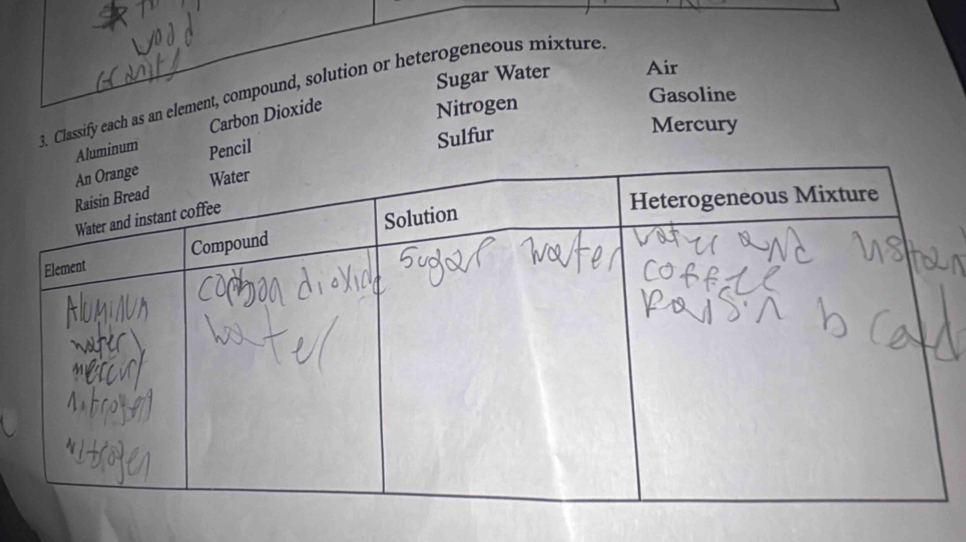 wood
3. Classify each as an element, compound, solution or heterogeneous mixture.
Aluminum Carbon Dioxide Sugar Water Air
An Orange Pencil Nitrogen Gasoline
Raisin Bread Water Sulfur Mercury
Water and instant coffee
Element Compound Solution Heterogeneous Mixture
Aluminun carbon dioxide sugar water water and
water water coffee
mercury Raisin
nitrogen
nitrogen